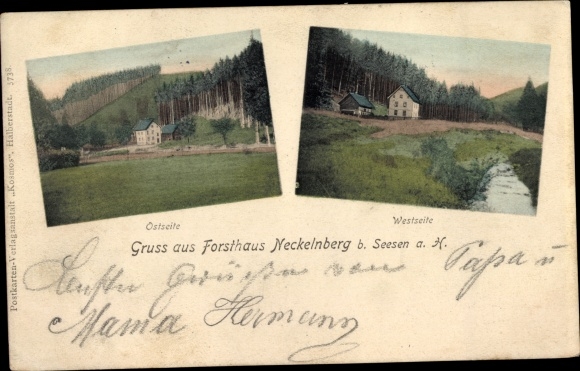 Postkarten-Verlagsanstalt „Kosmos", Halberstadt. 1738.
Ostseite
Westseite
Gruss aus Forsthaus Neckelnberg b. Seesen a. H.
Grüße von Papa u
Mama Hermann